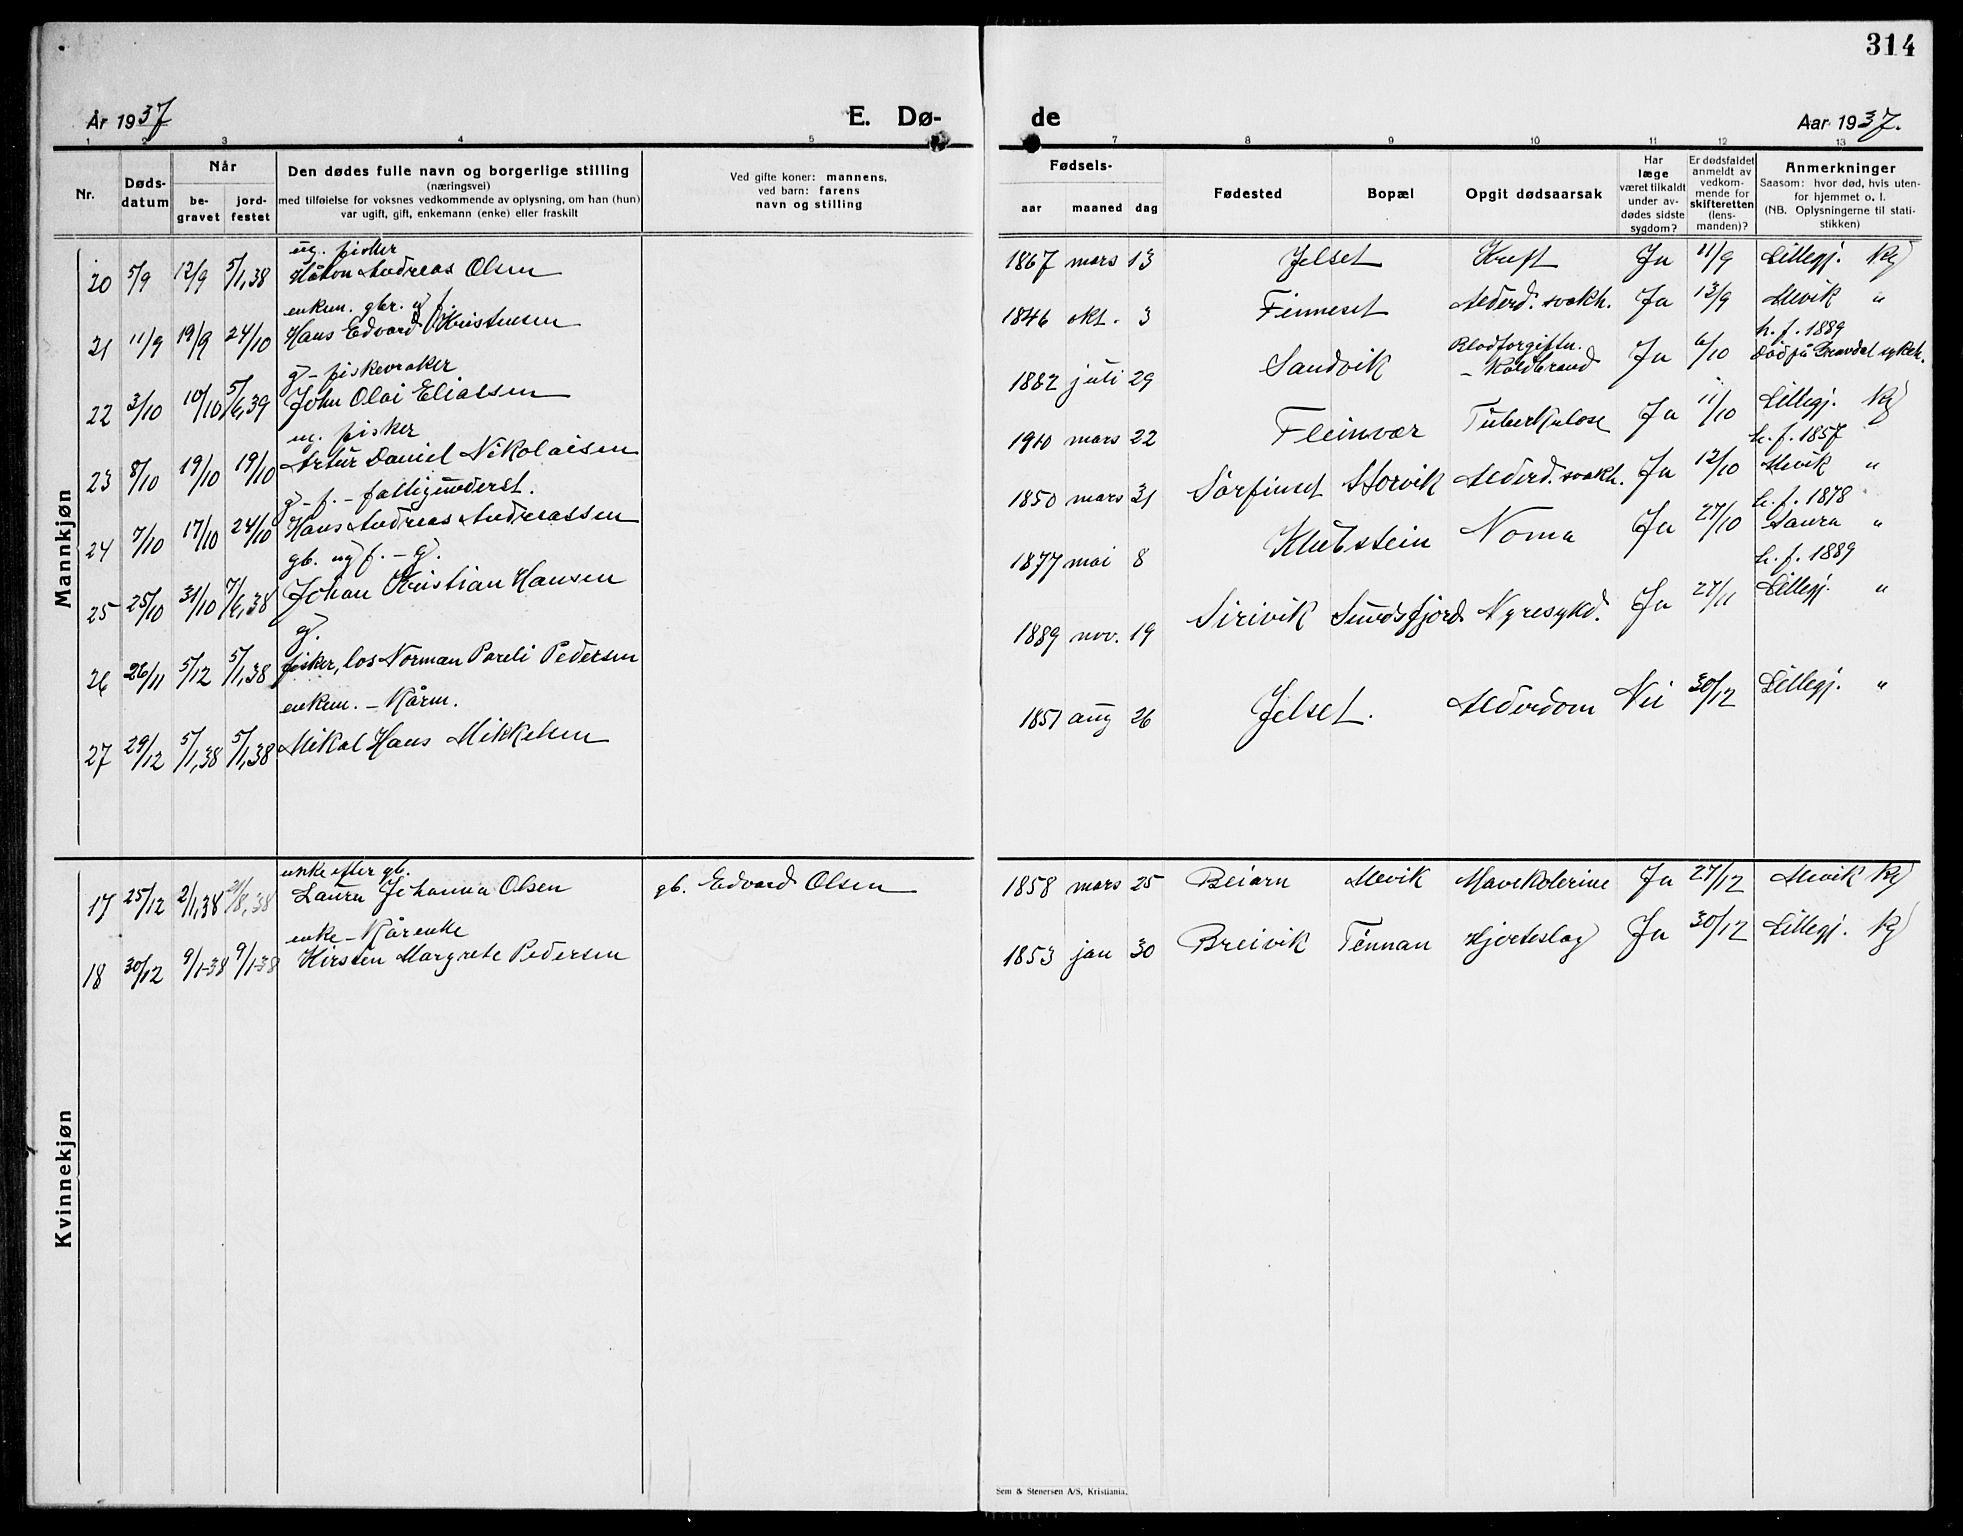 314
År 1937
E. Dø-
de
Aar 1937.
1 2 3 4 5 7 8 9 10 11 12 13
Nr.
Døds-
datum
Når
be-
gravet
jord-
festet
Den dødes fulle navn og borgerlige stilling
(næringsvei)
med tilføielse for voksnes vedkommende av oplysning, om han (hun)
var ugift, gift, enkemann (enke) eller fraskilt
Ved gifte koner: mannens,
ved barn: farens
navn og stilling
Fødsels-
aar maaned dag
Fødested
Bopæl
Opgit dødsaarsak
Har
læge
været tilkaldt
under av-
dødes sidste
sygdom?
Er dødsfaldet
anmeldt av
vedkom-
mende for
skifteretten
(lens-
manden)?
Anmerkninger
Saasom: hvor død, hvis uten-
for hjemmet o. l.
(NB. Oplysningerne til stati-
stikken)
Mannkjøn
ug. fisker
20 5/9 12/9 5/1,38 Håkon Andreas Olsen 1867 mars 13 Jelset Kreft Ja 11/9 Lillegj.
enkem. gbr. og f.
21 11/9 19/9 24/10 Hans Edvard Kristensen 1846 okt. 3 Finneset Alderd. svakh. Ja 13/9 Mevik "
h. f. 1889
g - fiskevraker
22 3/10 10/10 5/6,39 John Olai Eliassen 1882 juli 29 Sandvik Blodforgiftn. - Koldbrand Ja 6/10 Død på Gravdal sykeh.
ug. fisker
23 8/10 19/10 19/10 Artur Daniel Nikolaisen 1910 mars 22 Fleinvær Tuberkulose Ja 11/10 Lillegj.
h. f. 1857
g - f. - fattigunderst.
24 7/10 17/10 24/10 Hans Andreas Andreassen 1850 mars 31 Sørfinset Storvik Alderd. svakh. Ja 12/10 Mevik "
h. f. 1878
gb. og f. - g.
25 25/10 31/10 7/6,38 Johan Kristian Hansen 1877 mai 8 Klubstein Noma Ja 27/10 Saura "
h. f. 1889
g.
26 26/11 5/12 5/1,38 fisker, los Norman Pareli Pedersen 1889 nov. 19 Sirivik Sundsfjord Nyresykd. Ja 27/11 Lillegj. "
enkem. - Kårm.
27 29/12 5/1,38 5/1,38 Mikal Hans Mikkelsen 1851 aug 26 Jelset. Alderdom Nei 30/12 Lillegj. "
Kvinnekjøn
enke efter gb.
17 25/12 2/1,38 21/8,38 Laura Johanna Olsen gb. Edvard Olsen 1858 mars 25 Beiarn Mevik Mavekolerine Ja 27/12 Mevik
enke - Kårenke
18 30/12 9/1-38 9/1-38 Kirsten Margrete Pedersen 1853 jan 30 Breivik Tennan Hjerteslag Ja 30/12 Lillegj.
Sem & Stenersen A/S, Kristiania.